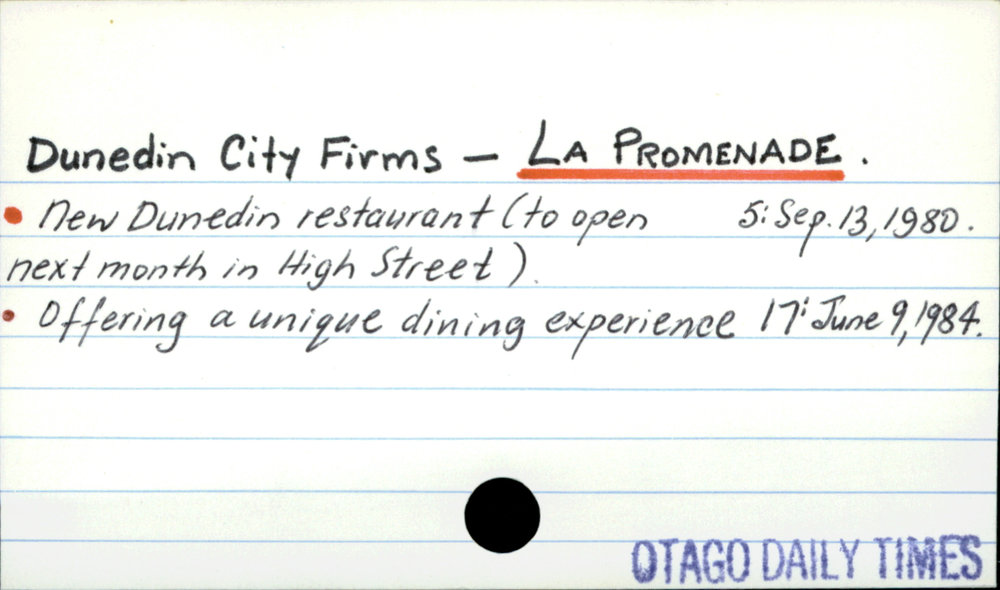 Dunedin City Firms – LA PROMENADE.
• New Dunedin restaurant (to open 5: Sep. 13, 1980.
next month in High Street).
• Offering a unique dining experience 17: June 9, 1984.
OTAGO DAILY TIMES